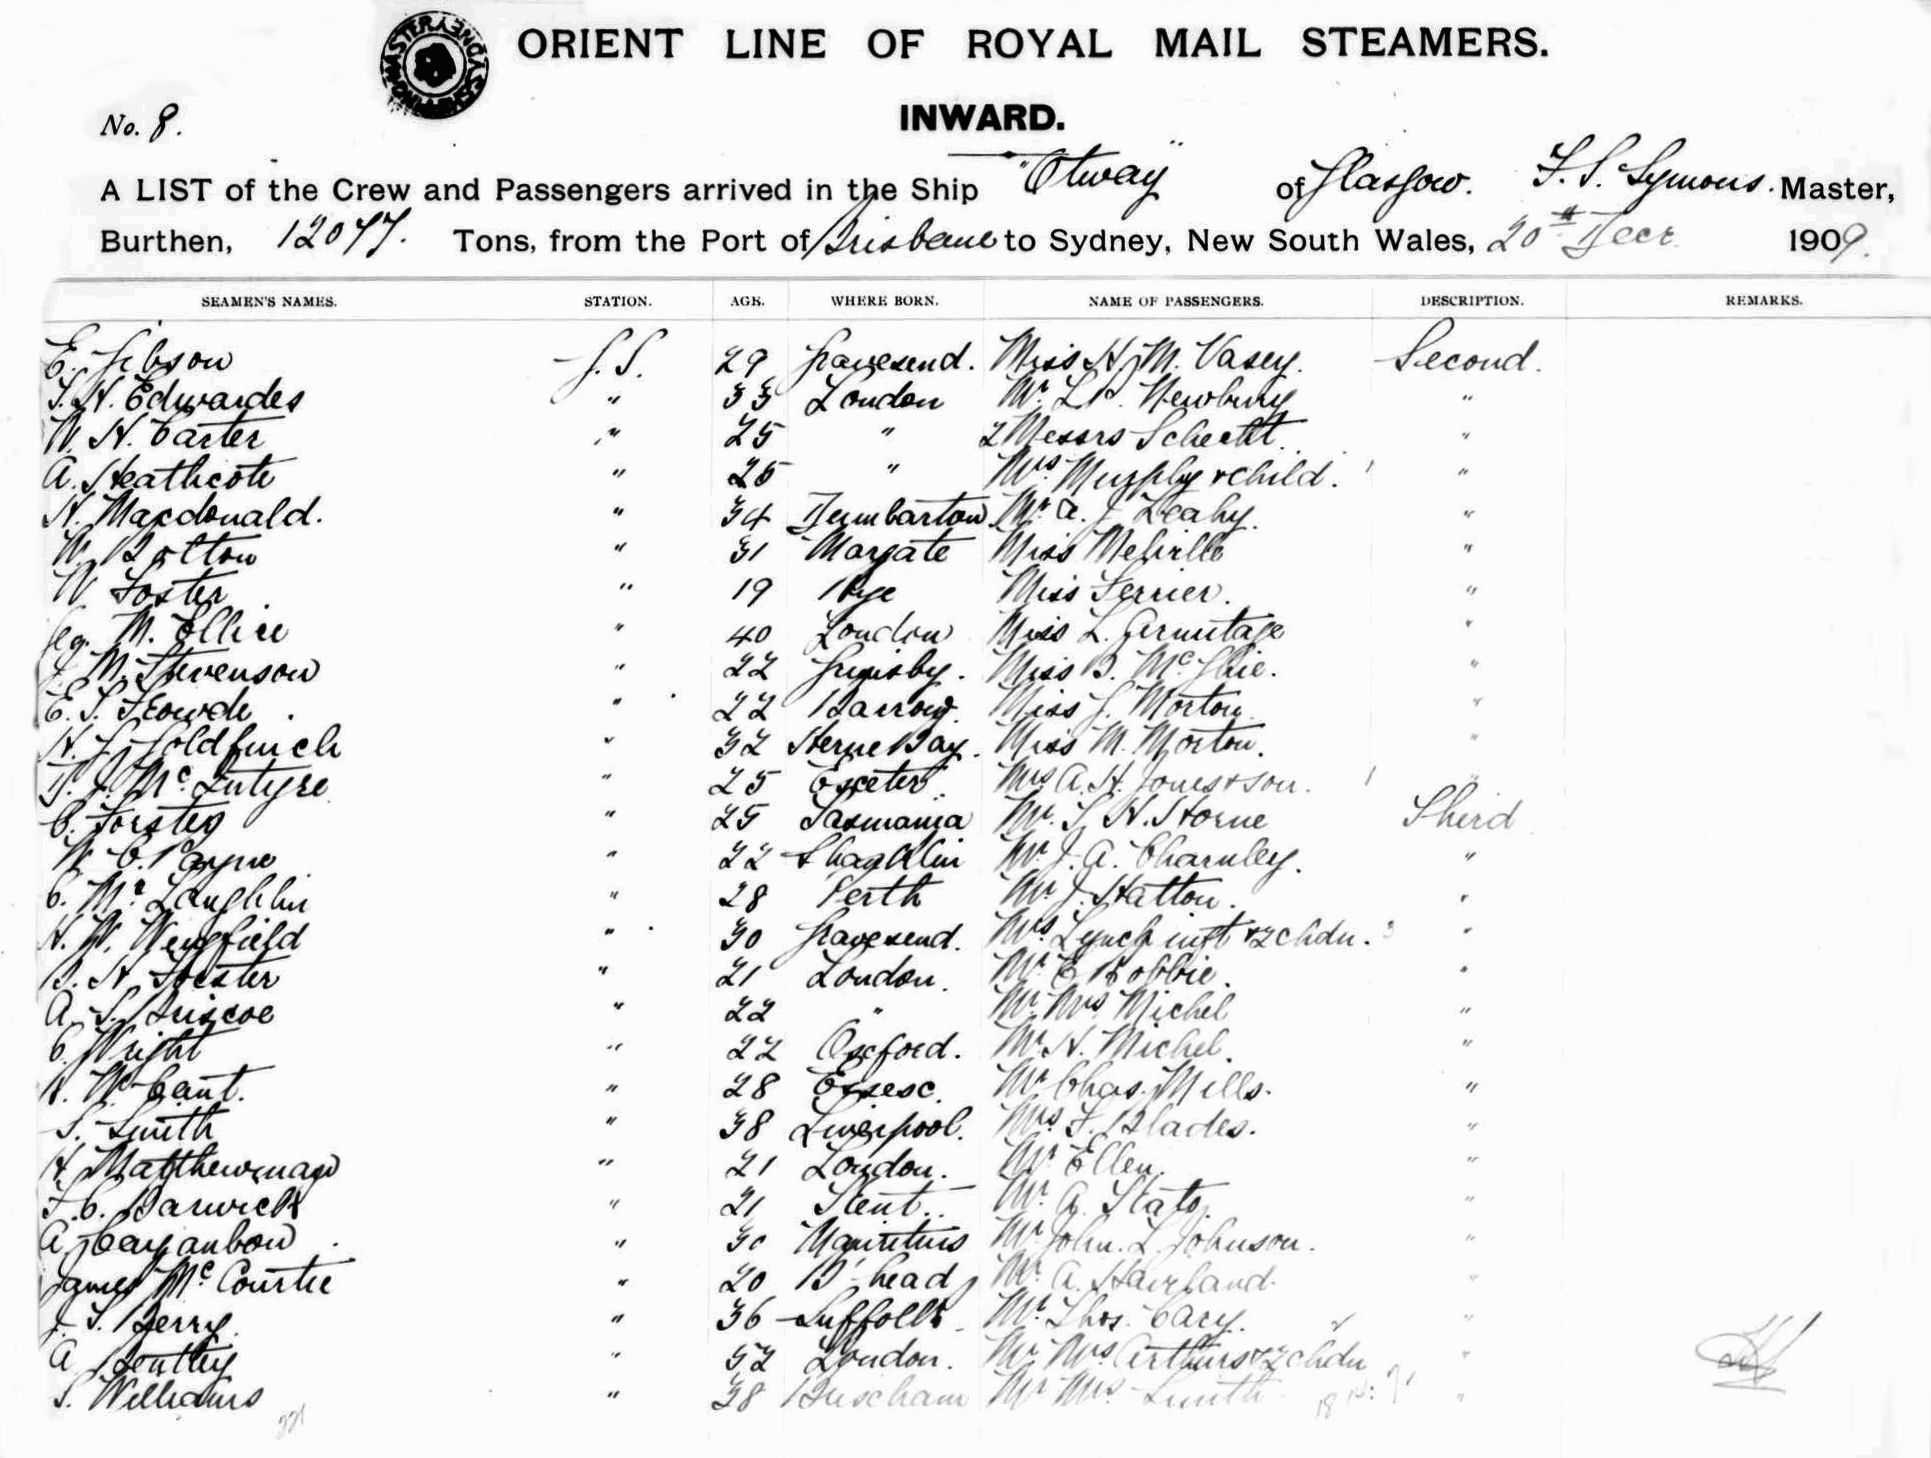 ORIENT LINE OF ROYAL MAIL STEAMERS.
INWARD.
No. 8.
A LIST of the Crew and Passengers arrived in the Ship "Otway" of Glasgow. F. S. Symons. Master,
Burthen, 12077. Tons, from the Port of Brisbane to Sydney, New South Wales, 20th Decr 1909.
SEAMEN'S NAMES. STATION. AGE. WHERE BORN. NAME OF PASSENGERS. DESCRIPTION. REMARKS.
E. Gibson G.S. 29 Gravesend. Miss H. M. Vasey. Second.
T. H. Edwardes " 33 London Mr. L. P. Newbury "
W. H. Carter " 25 " 2 Messrs Schecht "
A. Heathcote " 25 " Mrs Murphy & child. 1 "
H. Macdonald. " 34 Dumbarton Mr. A. J. Leahy. "
W. Bolton " 31 Margate Miss Melville "
W Foster " 19 Rye Miss Ferrier. "
M. Ellice " 40 London Miss L. Armitage "
J. M. Stevenson " 22 Grimsby. Miss B. McGhie. "
E. S. " 22 Barrow. Miss J. Morton "
H. G. Goldfinch " 32 Herne Bay. Miss M. Morton. "
J. McIntyre " 25 Exeter. Mrs A. H. Jones & son. 1 "
C. " 25 Tasmania Mr. S. H. Horne Third
W. C. Payne " 22 Mr. J. A. Charnley. "
C. McLaughlin " 28 Perth Mr. J. Hatton. "
H. W. Wingfield " 30 Gravesend. Mrs. Lynch inft & 2 chdn. 3 "
B. H. Forster " 21 London. Mr. E. Robbie. "
A. S. Briscoe " 22 " Mr Mrs Michel "
C. Wright " 22 Oxford. Mr. H. Michel. "
Cant. " 28 Essex. Mr Chas. Mills. "
S. Smith " 38 Liverpool. Mrs F. Blades. "
H. Matthewman " 21 London. Mr Ellen. "
F. C. Barwick " 21 Kent. Mr. A. "
A. " 30 Mauritius Mr John. L. Johnson. "
James McCourtie " 20 B'head Mr. A. Haviland. "
J. T. Berry. " 36 Suffolk Mr. Thos. Cary. "
A Bentley " 52 London. Mr Mrs Arthurs & 2 chdn "
S. Williams " 38 Mr Mrs Smith "